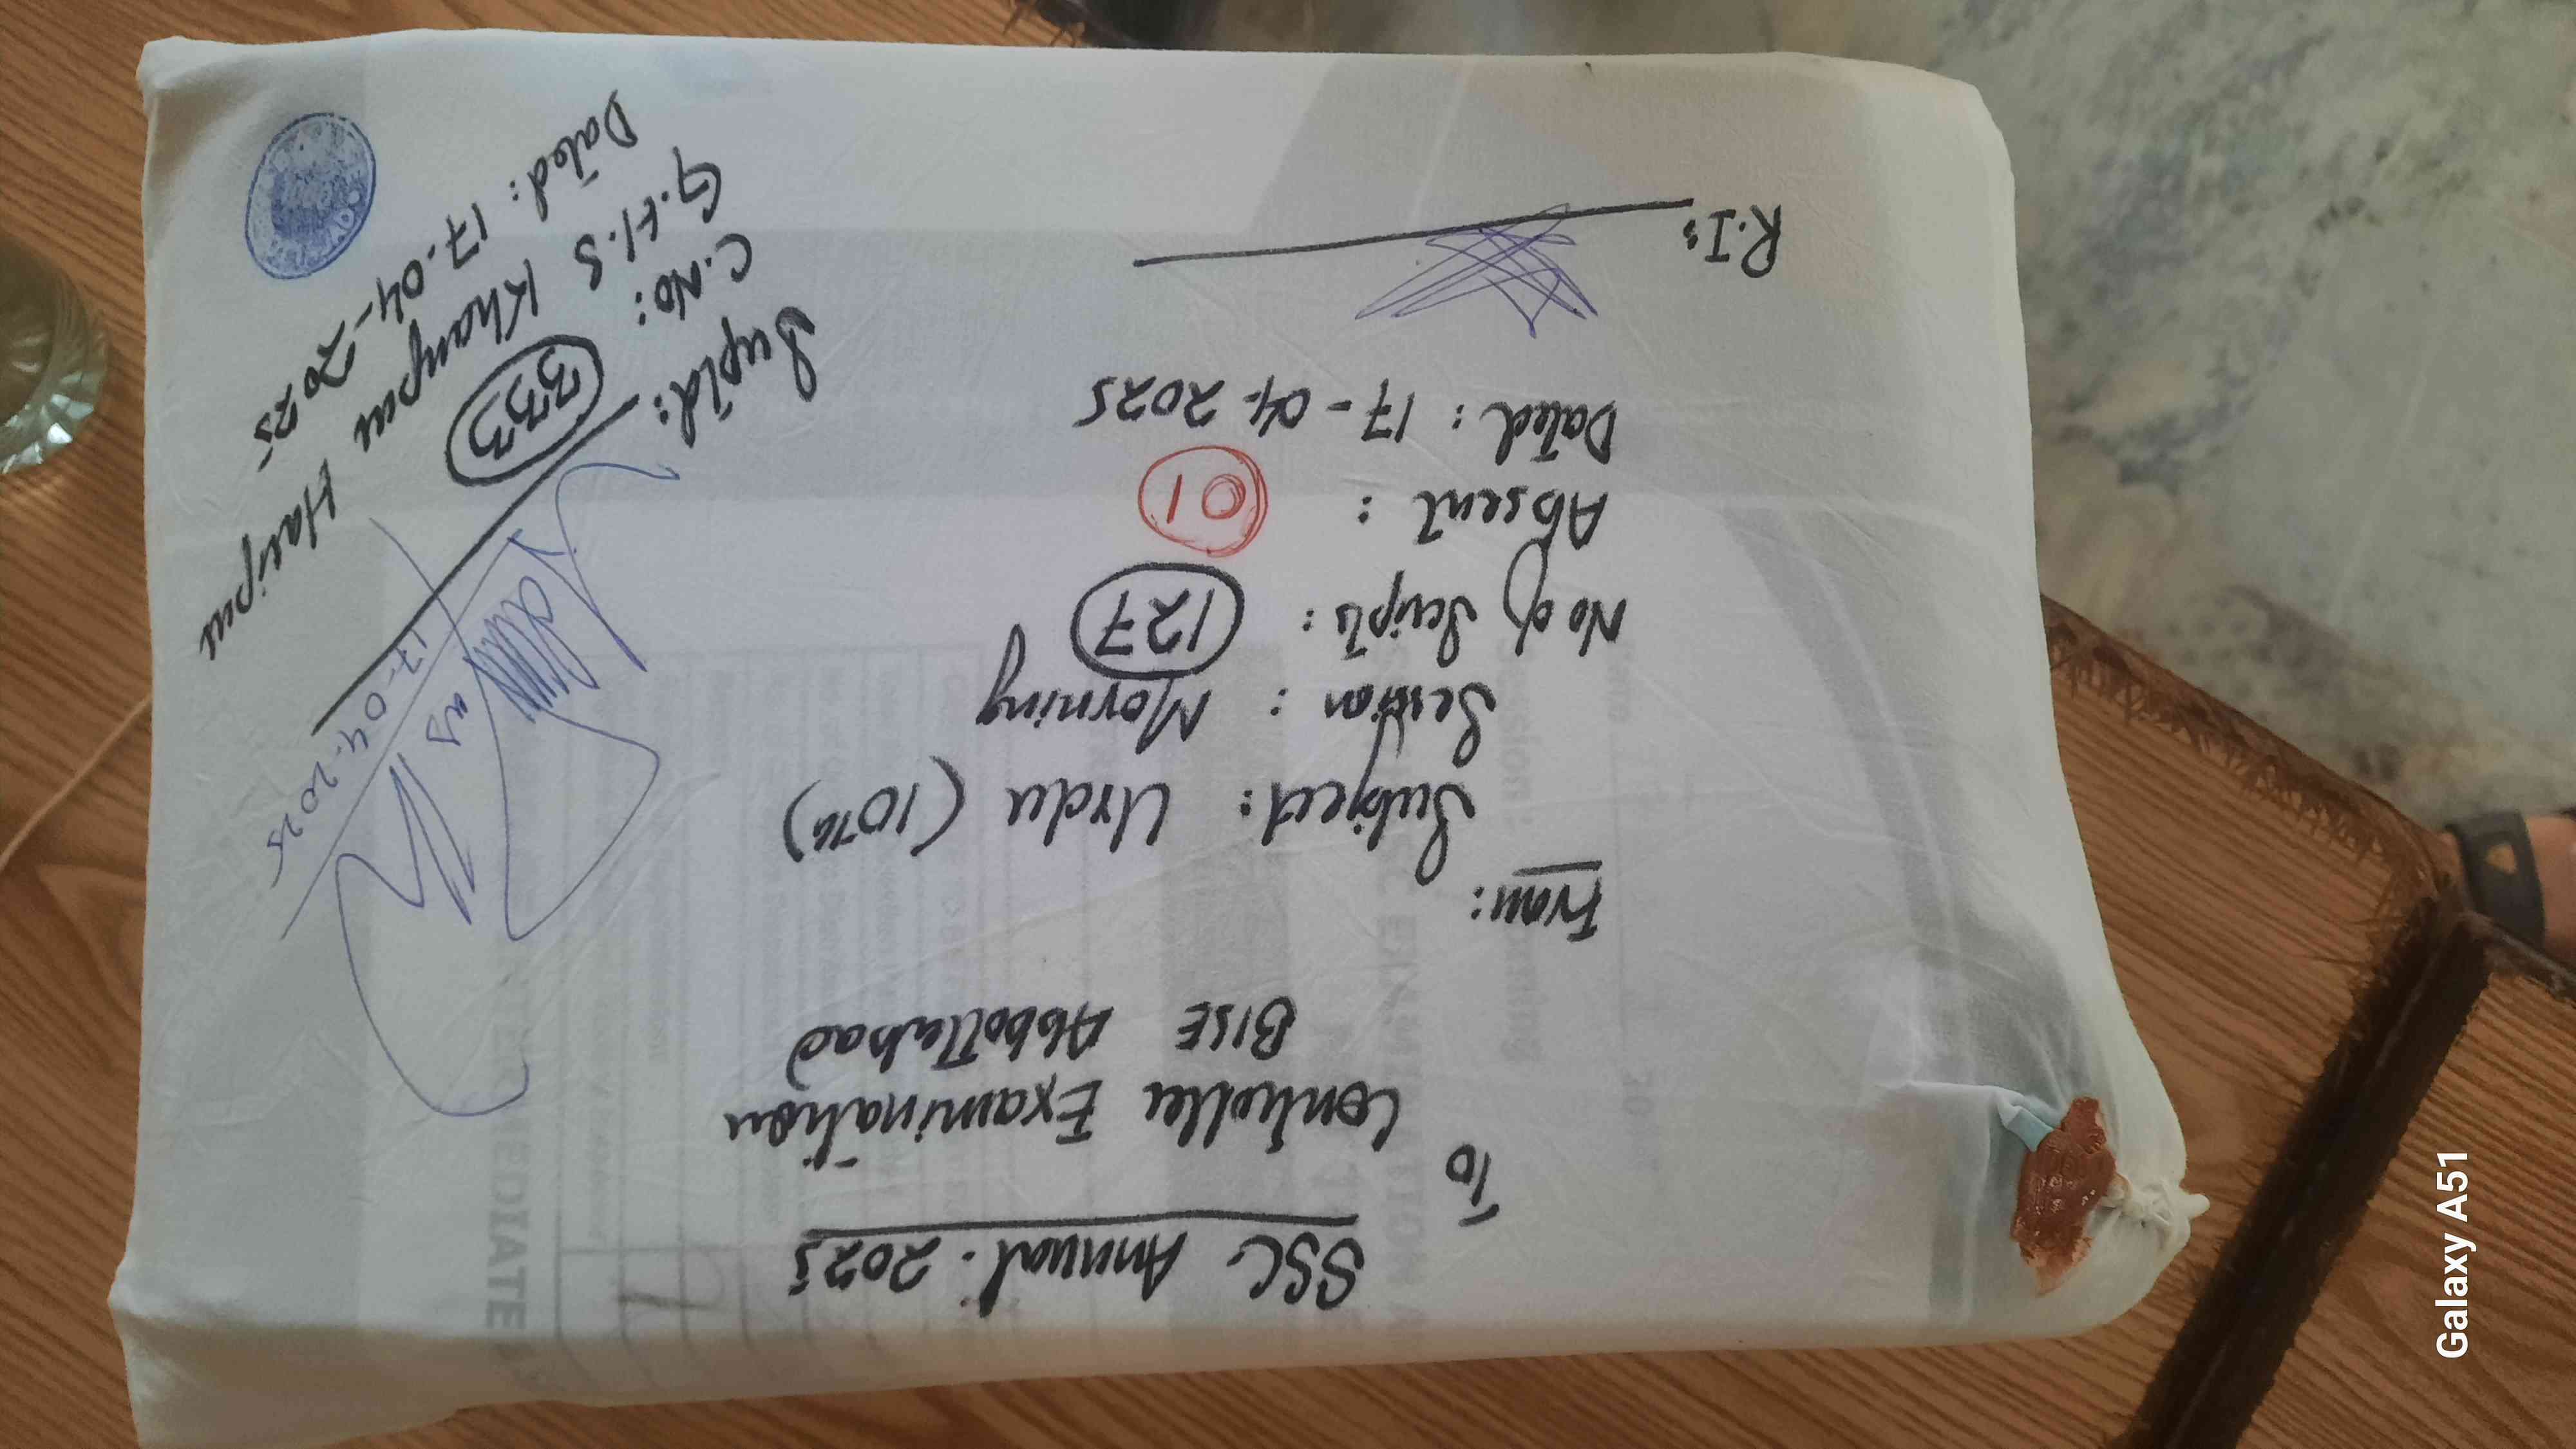 SSC Annual. 2025
To
Controller Examination
BISE Abbottabad
From:
Subject: Urdu (10th)
Session: Morning
No of Scripts: 127
Absent: 01
Dated: 17-04-2025
R.I:
Suptd:
17-04-2025
C.No: 333
G.H.S Khanpur Haripur
Dated: 17-04-2025
MEDIATE
Galaxy A51